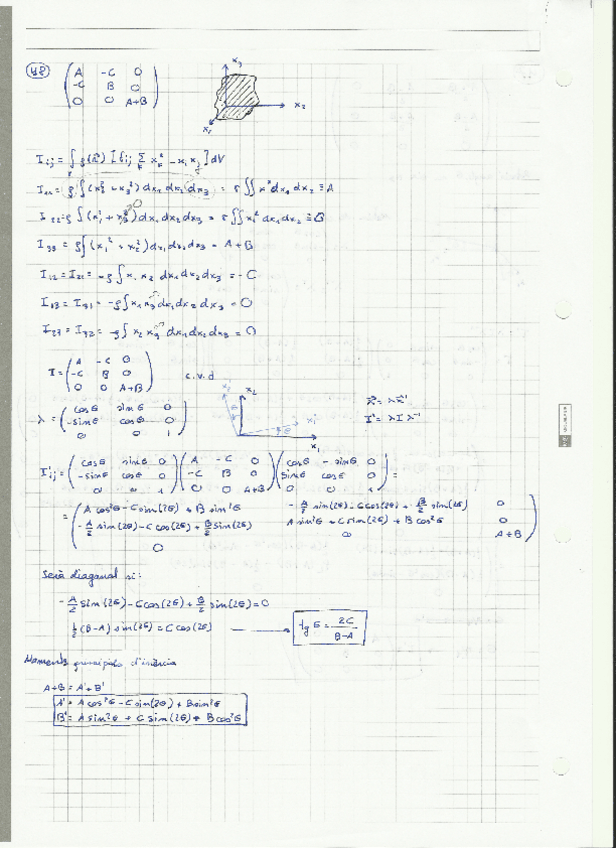 48 ( A -C 0
-C B 0
0 0 A+B )
x₃
x₂
x₁
I_ij = ∫ ρ(r⃗) [δ_ij Σ x_k² - x_i x_j] dV
I₁₁ = ρ ∫ (x₂² + x₃²) dx₁ dx₂ dx₃ = σ ∫∫ x² dx₁ dx₂ ≡ A
I₂₂ = ρ ∫ (x₁² + x₃²) dx₁ dx₂ dx₃ = σ ∫∫ x₁² dx₁ dx₂ ≡ B
I₃₃ = ρ ∫ (x₁² + x₂²) dx₁ dx₂ dx₃ = A+B
I₁₂ = I₂₁ = -ρ ∫ x₁ x₂ dx₁ dx₂ dx₃ = -C
I₁₃ = I₃₁ = -ρ ∫ x₁ x₃ dx₁ dx₂ dx₃ = 0
I₂₃ = I₃₂ = -ρ ∫ x₂ x₃ dx₁ dx₂ dx₃ = 0
I = ( A -C 0
-C B 0
0 0 A+B ) c.v.d
λ = ( cosθ sinθ 0
-sinθ cosθ 0
0 0 1 )
x₂
x₁'
θ
x₁
x⃗ = λ x⃗'
I' = λ I λ⁻¹
I'_ij = ( cosθ sinθ 0
-sinθ cosθ 0
0 0 1 ) ( A -C 0
-C B 0
0 0 A+B ) ( cosθ -sinθ 0
sinθ cosθ 0
0 0 1 ) =
= ( A cos²θ - C sin(2θ) + B sin²θ -A/2 sin(2θ) - C cos(2θ) + B/2 sin(2θ) 0
-A/2 sin(2θ) - C cos(2θ) + B/2 sin(2θ) A sin²θ + C sin(2θ) + B cos²θ 0
0 0 A+B )
Serà diagonal si:
-A/2 sin(2θ) - C cos(2θ) + B/2 sin(2θ) = 0
½ (B-A) sin(2θ) = C cos(2θ) → tg θ = 2C/(B-A)
Moments principals d'inèrcia
A+B = A'+B'
A' = A cos²θ - C sin(2θ) + B sin²θ
B' = A sin²θ + C sin(2θ) + B cos²θ